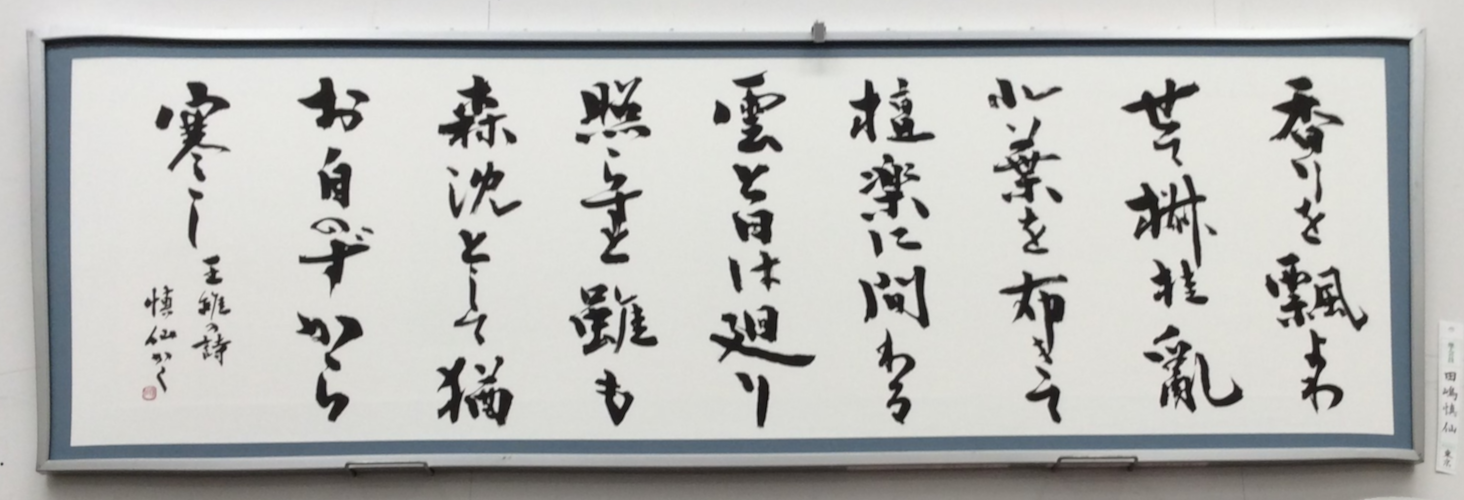 香りを飄よわ
せて椒桂亂
れ葉を布きて
檀楽に間わる
雲と日は廻り
照らすと雖も
森沈として猶
お自のずから
寒し
王維の詩
慎仙かく
田嶋慎仙 東京